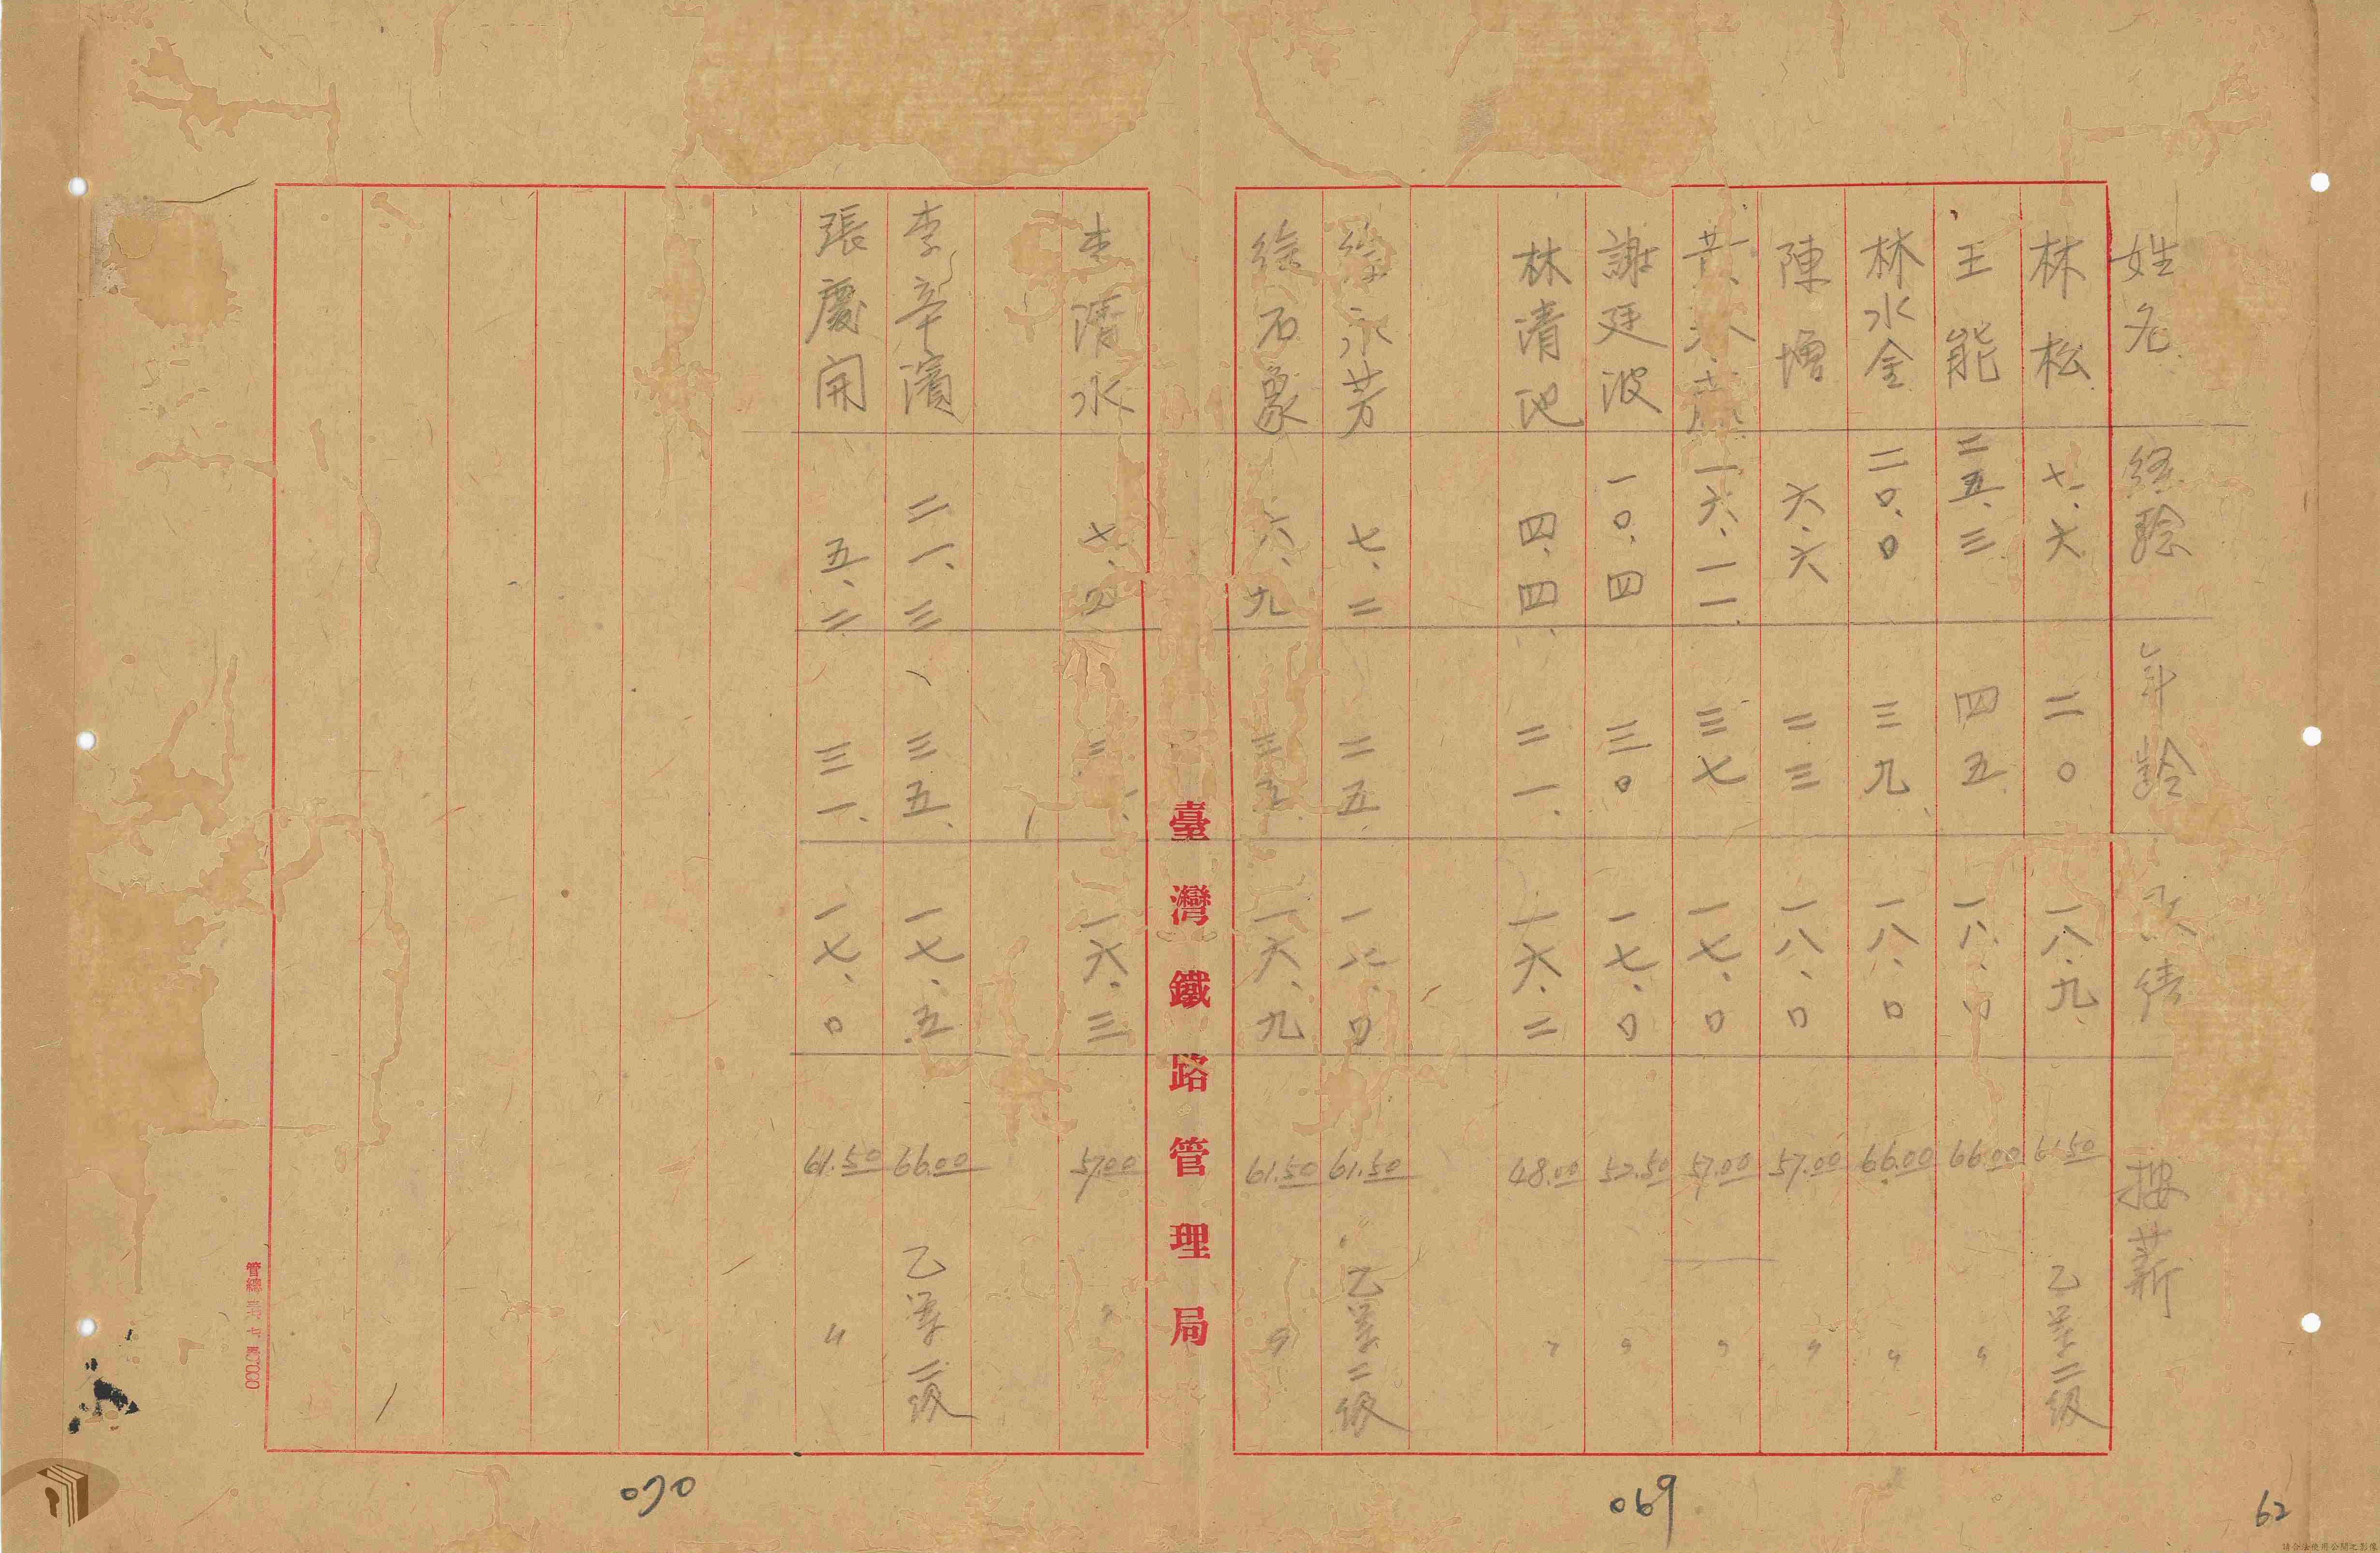 姓名 經驗 年齡 成績 按薪
林松 七、六 二〇 一八、九 61.50 乙等二級
王能 二五、三 四五 一八、〇 66.00 〃
林水金 二〇、〇 三九 一八、〇 66.00 〃
陳增 六、六 二三 一八、〇 57.00 〃
黃 一六、一一 三七 一七、〇 57.00 〃
謝廷波 一〇、四 三〇 一七、〇 52.50 〃
林清池 四、四 二一 一六、二 48.00 〃
徐永芳 七、二 二五 、〇 61.50 乙等二級
徐石象 六、九 三五 一六、九 61.50 〃
臺灣鐵路管理局
李清水 七、四 一六、三 57.00 〃
李辛濱 二一、三 三五 一七、五 66.00 乙等二級
張慶開 五、二 三一 一七、〇 61.50 〃
管總
070
069
62
請合法使用公開之影像